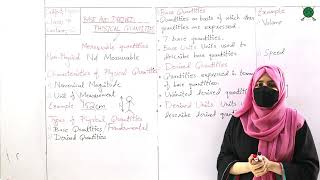 BASE AND DERIVED
PHYSICAL QUANTITIES
Measurable quantities
Non-Physical No Measurable
Characteristics of Physical Quantities
Numerical Magnitude
Unit of Measurement
Example 152cm
Types of Physical Quantities
Base Quantities/Fundamental
Derived Quantities
Base Quantities
Quantities on basis of which other
quantities are expressed
7 base quantities.
Base Units Units used to
describe base quantities.
Derived Quantities
Quantities expressed in terms
of base quantities.
Unlimited derived quantities
Derived Units Units
describe derived quant
Example
Volume
Speed